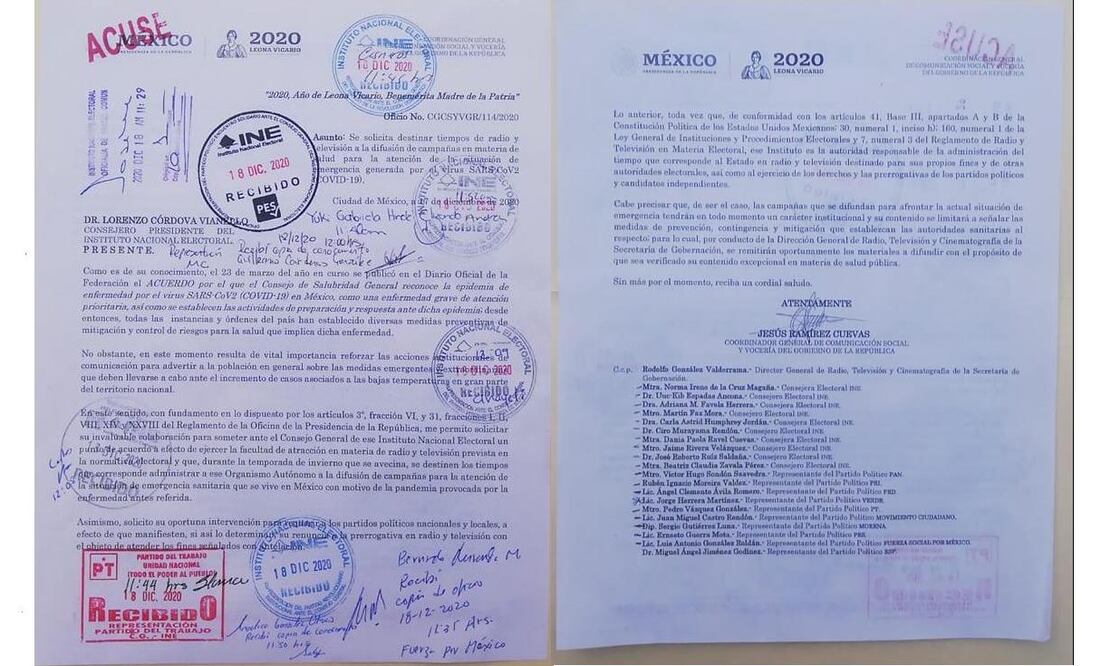 ACUSE
MÉXICO
PRESIDENCIA DE LA REPÚBLICA
2020
LEONA VICARIO
COORDINACIÓN GENERAL
DE COMUNICACIÓN SOCIAL Y VOCERÍA
DEL GOBIERNO DE LA REPÚBLICA
INSTITUTO NACIONAL ELECTORAL
INE
18 DIC 2020
11:45 hrs
RECIBIDO
2020 DIC 18 AM 11:29
"2020, Año de Leona Vicario, Benemérita Madre de la Patria"
Oficio No. CGCSYVGR/114/2020
Asunto: Se solicita destinar tiempos de radio y
televisión a la difusión de campañas en materia de
salud para la atención de la situación de
emergencia generada por el virus SARS-CoV2
(COVID-19).
INE
Instituto Nacional Electoral
18 DIC. 2020
RECIBIDO
PES
Ciudad de México, a de diciembre de 2020
DR. LORENZO CÓRDOVA VIANELLO
CONSEJERO PRESIDENTE DEL
INSTITUTO NACIONAL ELECTORAL.
PRESENTE.
18/12/20
Recibí copia de conocimiento
Representación
MC
Guillermo Cárdenas González
Como es de su conocimiento, el 23 de marzo del año en curso se publicó en el Diario Oficial de la
Federación el ACUERDO por el que el Consejo de Salubridad General reconoce la epidemia de
enfermedad por el virus SARS-CoV2 (COVID-19) en México, como una enfermedad grave de atención
prioritaria, así como se establecen las actividades de preparación y respuesta ante dicha epidemia; desde
entonces, todas las instancias y órdenes del país han establecido diversas medidas preventivas de
mitigación y control de riesgos para la salud que implica dicha enfermedad.
No obstante, en este momento resulta de vital importancia reforzar las acciones institucionales de
comunicación para advertir a la población en general sobre las medidas emergentes y extraordinarias
que deben llevarse a cabo ante el incremento de casos asociados a las bajas temperaturas en gran parte
del territorio nacional.
INSTITUTO NACIONAL ELECTORAL
18 DIC 2020
RECIBIDO
En este sentido, con fundamento en lo dispuesto por los artículos 3°, fracción VI, y 31, fracciones I, II,
VIII, XIV y XXVIII del Reglamento de la Oficina de la Presidencia de la República, me permito solicitar
su invaluable colaboración para someter ante el Consejo General de ese Instituto Nacional Electoral un
punto de acuerdo a efecto de ejercer la facultad de atracción en materia de radio y televisión prevista en
la normativa electoral y que, durante la temporada de invierno que se avecina, se destinen los tiempos
que corresponde administrar a ese Organismo Autónomo a la difusión de campañas para la atención de
la situación de emergencia sanitaria que se vive en México con motivo de la pandemia provocada por la
enfermedad antes referida.
RECIBIDO
Asimismo, solicito su oportuna intervención para que los partidos políticos nacionales y locales, a
efecto de que manifiesten, si así lo determinan, su renuncia a la prerrogativa en radio y televisión con
el objeto de atender los fines señalados con antelación.
PT
PARTIDO DEL TRABAJO
UNIDAD NACIONAL
¡TODO EL PODER AL PUEBLO!
11:44 hrs
18 DIC. 2020
RECIBIDO
REPRESENTACIÓN
PARTIDO DEL TRABAJO
C.G. - INE
INSTITUTO NACIONAL ELECTORAL
INE
18 DIC 2020
RECIBIDO
Recibí copia de conocimiento
11:50 hrs
Bernardo M
Recibí
copia de oficio
18-12-2020
11:35 hrs.
Fuerza por México
MÉXICO
PRESIDENCIA DE LA REPÚBLICA
2020
LEONA VICARIO
ACUSE
COORDINACIÓN GENERAL
DE COMUNICACIÓN SOCIAL Y VOCERÍA
DEL GOBIERNO DE LA REPÚBLICA
Lo anterior, toda vez que, de conformidad con los artículos 41, Base III, apartados A y B de la
Constitución Política de los Estados Unidos Mexicanos; 30, numeral 1, inciso h); 160, numeral 1 de la
Ley General de Instituciones y Procedimientos Electorales y 7, numeral 3 del Reglamento de Radio y
Televisión en Materia Electoral, ese Instituto es la autoridad responsable de la administración del
tiempo que corresponde al Estado en radio y televisión destinado para sus propios fines y de otras
autoridades electorales, así como al ejercicio de los derechos y las prerrogativas de los partidos políticos
y candidatos independientes.
Cabe precisar que, de ser el caso, las campañas que se difundan para afrontar la actual situación de
emergencia tendrán en todo momento un carácter institucional y su contenido se limitará a señalar las
medidas de prevención, contingencia y mitigación que establezcan las autoridades sanitarias al
respecto para lo cual, por conducto de la Dirección General de Radio, Televisión y Cinematografía de la
Secretaría de Gobernación, se remitirán oportunamente los materiales a difundir con el propósito de
que sea verificado su contenido excepcional en materia de salud pública.
Sin más por el momento, reciba un cordial saludo.
ATENTAMENTE
JESÚS RAMÍREZ CUEVAS
COORDINADOR GENERAL DE COMUNICACIÓN SOCIAL
Y VOCERÍA DEL GOBIERNO DE LA REPÚBLICA
C.c.p. Rodolfo González Valderrama.- Director General de Radio, Televisión y Cinematografía de la Secretaría de
Gobernación.
Mtra. Norma Irene de la Cruz Magaña.- Consejera Electoral INE.
Dr. Uuc-Kib Espadas Ancona.- Consejero Electoral INE.
Dra. Adriana M. Favela Herrera.- Consejera Electoral INE.
Mtro. Martín Faz Mora.- Consejero Electoral INE.
Dra. Carla Astrid Humphrey Jordán.- Consejera Electoral INE.
Dr. Ciro Murayama Rendón.- Consejero Electoral INE.
Mtra. Dania Paola Ravel Cuevas.- Consejera Electoral INE.
Mtro. Jaime Rivera Velázquez.- Consejero Electoral INE.
Dr. José Roberto Ruiz Saldaña.- Consejero Electoral INE.
Mtra. Beatriz Claudia Zavala Pérez.- Consejera Electoral INE.
Mtro. Víctor Hugo Sondón Saavedra.- Representante del Partido Político PAN.
Rubén Ignacio Moreira Valdez.- Representante del Partido Político PRI.
Lic. Ángel Clemente Ávila Romero.- Representante del Partido Político PRD.
Lic. Jorge Herrera Martínez.- Representante del Partido Político VERDE.
Mtro. Pedro Vásquez González.- Representante del Partido Político PT.
Lic. Juan Miguel Castro Rendón.- Representante del Partido Político MOVIMIENTO CIUDADANO.
Dip. Sergio Gutiérrez Luna.- Representante del Partido Político MORENA
Lic. Ernesto Guerra Mota.- Representante del Partido Político PES.
Lic. Luis Antonio González Roldán.- Representante del Partido Político FUERZA SOCIAL POR MÉXICO.
Dr. Miguel Ángel Jiménez Godínez.- Representante del Partido Político RSP.